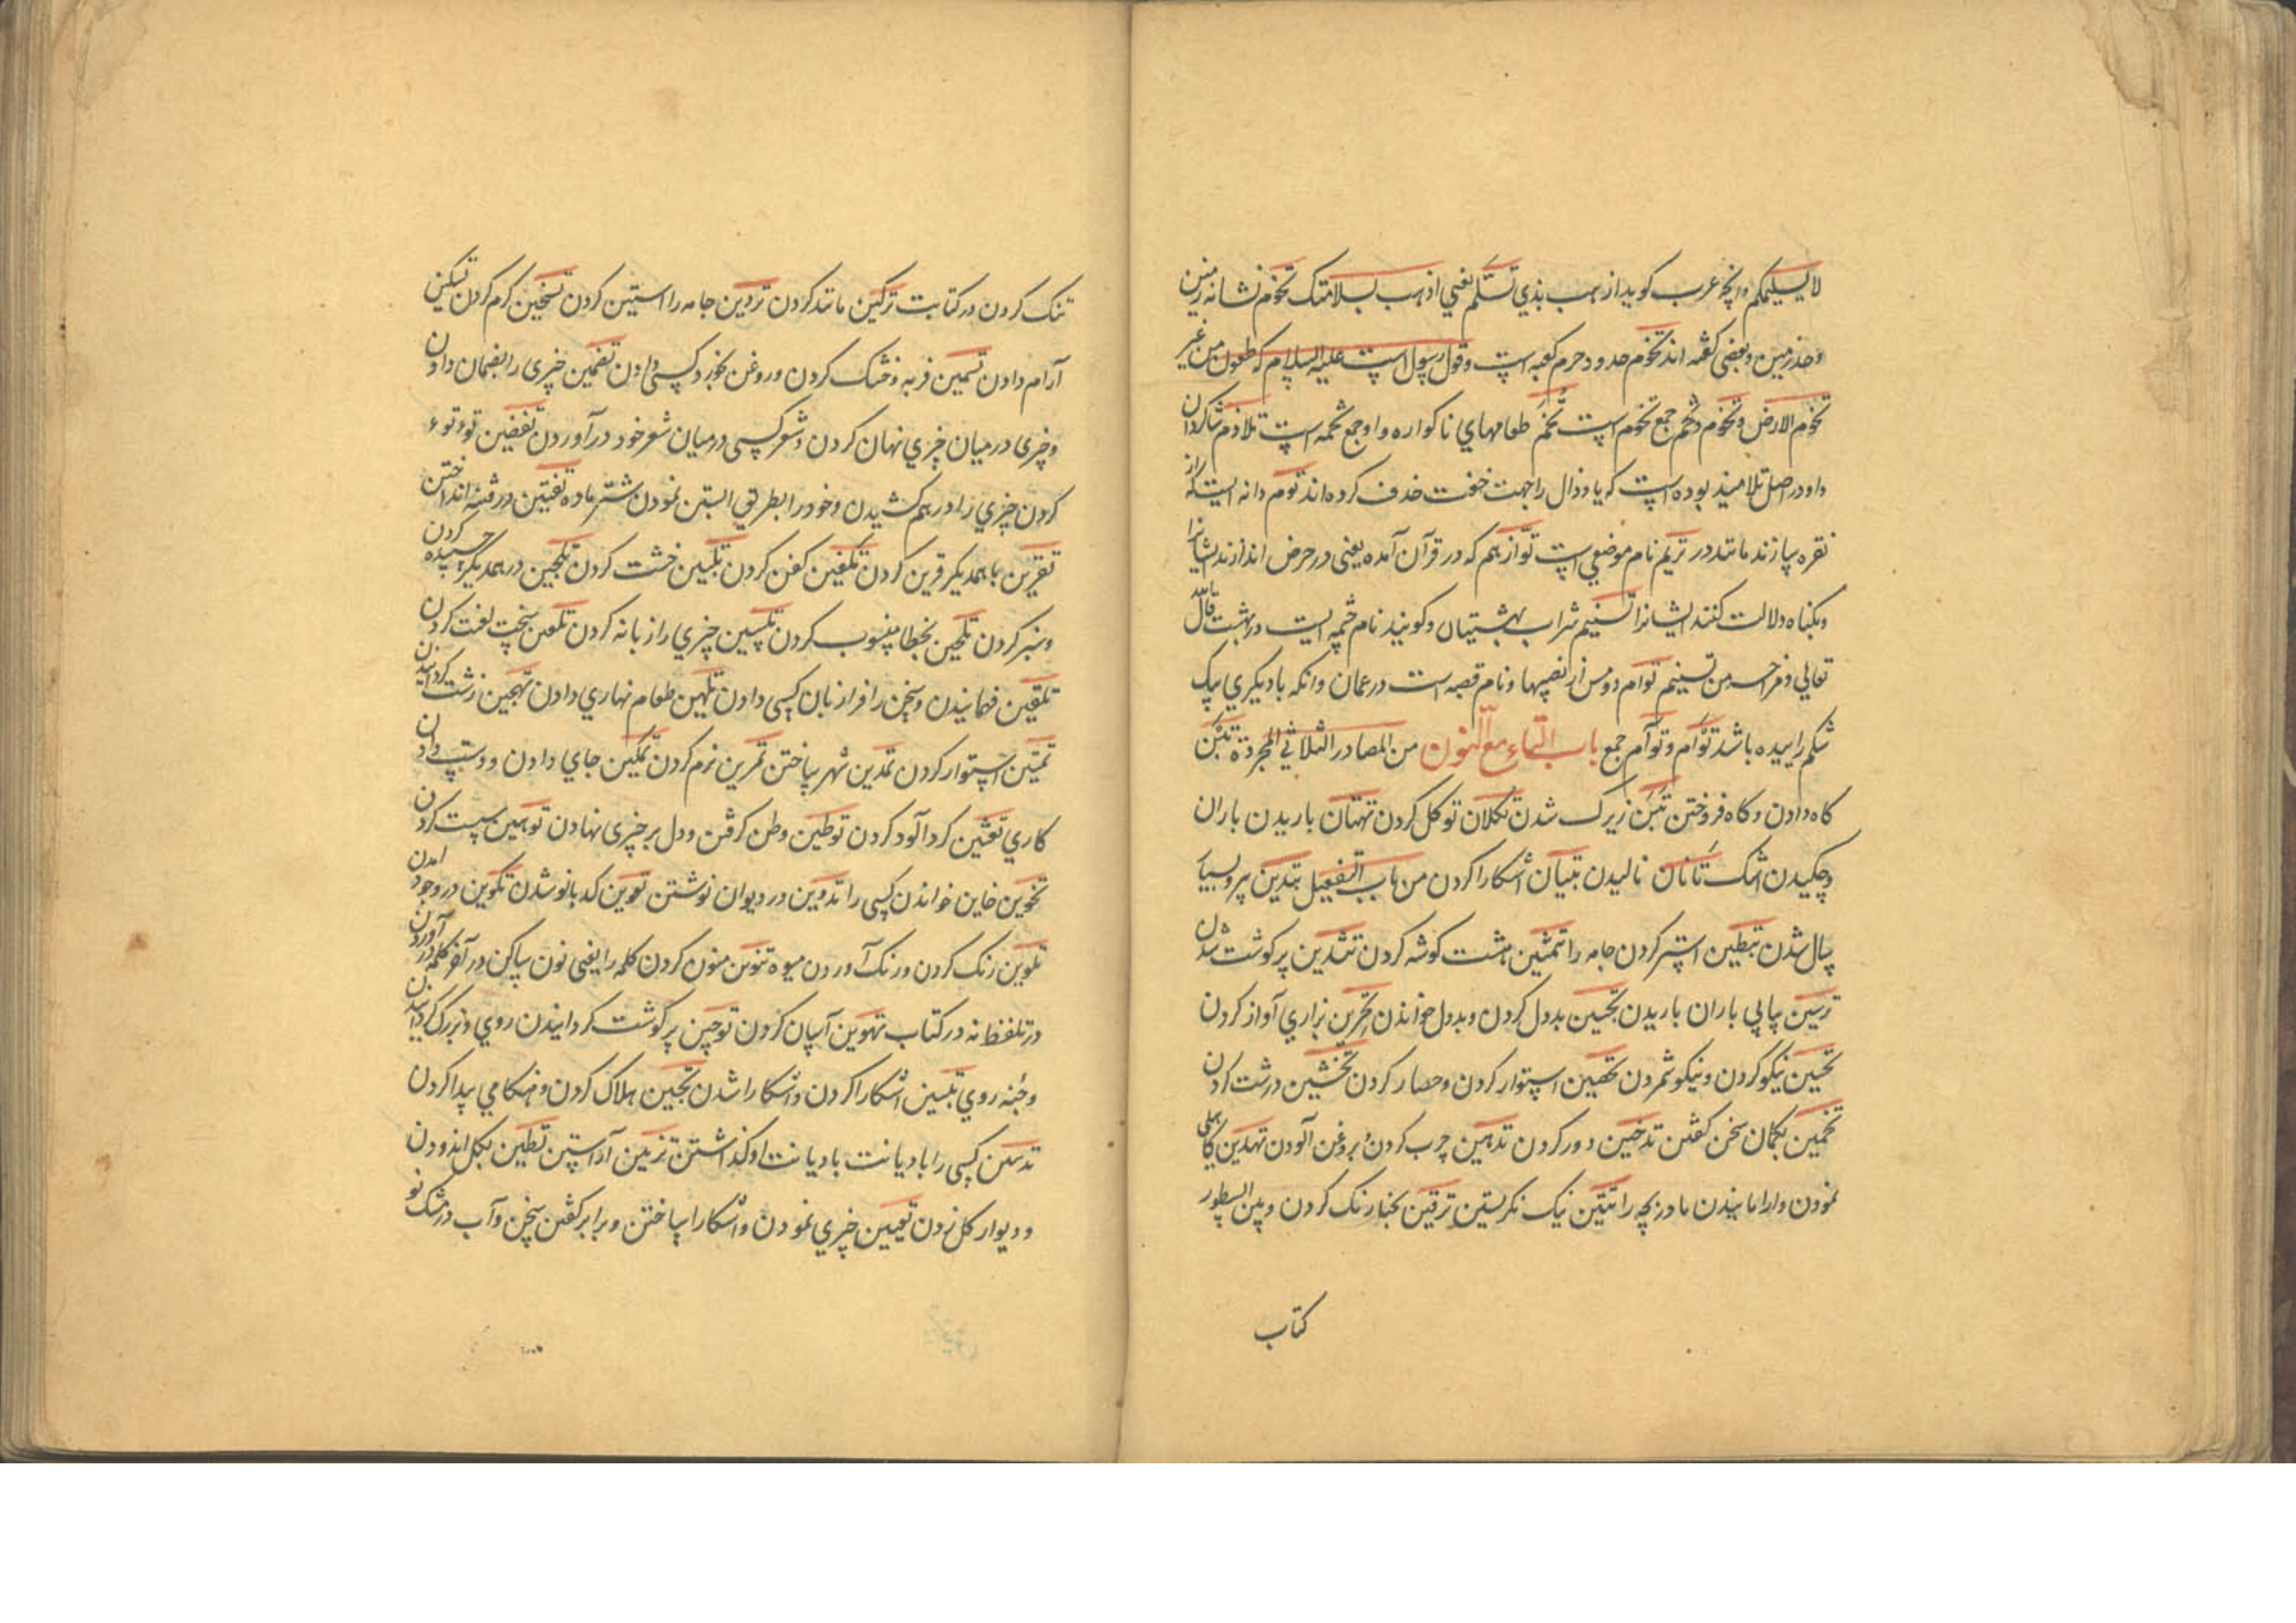 لا یسلیمکم وانچه عرب کوید اذهب بذی تسلم یعنی اذهب بسلامتک تخوم نشانه زمین
وحد زمین وبعضی کفته اند تخوم حدود حرم کعبه است وقول رسول است علیه السلام که ملعون من غیر
تخوم الارض وتخوم وتخم جمع تخوم است تخم طعامهای ناکواره واو جمع تخمه است تلاذم شاکردان
واو در اصل تلامیذ بوده است که یا وذال را جهت خفت حذف کرده اند توم دانه ایست که از
نقره سازند مانند در تریم نام موضعی است تواز بهم که در قرآن آمده یعنی در حرص اندازند ایشانرا
وبکناه دلالت کنند ایشانرا تسنیم شراب بهشتیان وکویند نام چشمه ایست در بهشت قال الله
تعالی ومزاجه من تسنیم توام دومس از نصیبها ونام قصبه است در عمان وانکه با دیکری بیک
شکم زاییده باشد توأم وتوآم جمع باب التاء مع النون من المصادر الثلاثی المجردة تبن
کاه دادن وکاه فروختن تبن زیرک شدن تکلان توکل کردن تهتان باریدن باران
وچکیدن اشک تانان نالیدن تبیان اشکارا کردن من باب التفعیل تبدین پیر وبسیار
سال شدن تبطین استر کردن جامه را تثمین هشت کوشه کردن تثدین پر کوشت شدن
ترثین پیاپی باران باریدن تجبین بددل کردن وبددل خواندن تحزین بزاری آواز کردن
تحسین نیکو کردن ونیکو شمردن تحصین استوار کردن وحصار کردن تخشین درشت کردن
تخمین بکمان سخن کفتن تدخین دور کردن تدهین چرب کردن وبروغن آلودن تهدین کاهلی
نمودن وارامانیدن مادر بچه را تتبین نیک نکریستن ترقین بخنا رنک کردن وبین السطور
کتاب
تنک کردن در کتابت ترکین مانند کردن تردین جامه را استین کردن تسخین کرم کردن تسکین
آرام دادن تسمین فربه وخنک کردن وروغن بخورد کسی دادن تضمین چیزی را بضمان دادن
وچیزی در میان چیزی نهان کردن وشعر کسی در میان شعر خود درآوردن تغضین توتوء
کردن چیزی را درهم کشیدن وخود را بطریق ابستن نمودن شتر ماده تفتین در فتنه انداختن
تقرین با همدیکر قرین کردن تکفین کفن کردن تلبین خشت کردن تلجین در همدیکر چسپیده کردن
وسبز کردن تلحین بخطا منسوب کردن تلسین چیزی را زبانه کردن تلعین سخت لعنت کردن
تلقین فهمانیدن وسخن را فرا زبان کسی دادن تلهین طعام نهاری دادن تهجین زشت کردانیدن
تمتین استوار کردن تمدین شهر ساختن تمرین نرم کردن تمکین جای دادن ودست دادن
کاری تعثین کرد آلود کردن توطین وطن کرفتن ودل بر چیزی نهادن توهین سست کردن
تخوین خاین خواندن کسی را تدوین در دیوان نوشتن تعوین کدبانو شدن تکوین در وجود امدن
تلوین رنک کردن ورنک آوردن میوه تنوین منون کردن کلمه را یعنی نون ساکن در آخر کلمه در آوردن
در تلفظ نه در کتاب تهوین آسان کردن توجین پر کوشت کردانیدن روی وبزرک کردانیدن
وجنه روی تبیین اشکارا کردن واشکارا شدن تحیین هلاک کردن وهنکامی پیدا کردن
تدیین کسی را با دیانت با دیانت او کذاشتن تزیین آراستن تطیین بکل اندودن
ودیوار کل زدن تعیین چیزی نمودن واشکارا ساختن وبرابر کفتن سخن وآب در مشک نو